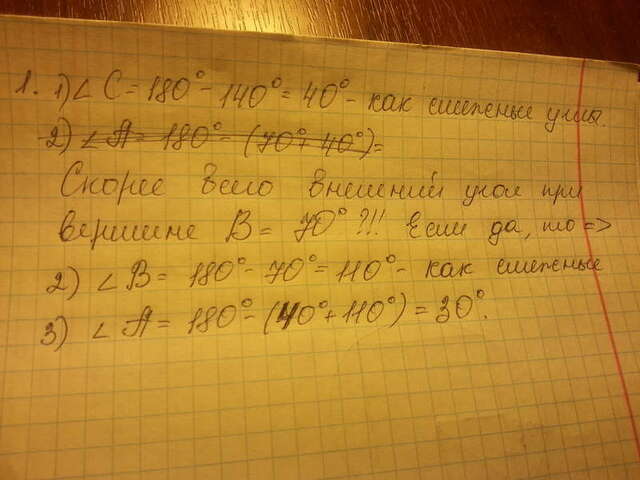 1. 1) ∠ C = 180° - 140° = 40° - как смежные углы
2) ∠ А = 180° - (70° + 40°) =
Скорее всего внешний угол при
вершине В = 70° ?!! Если да, то =>
2) ∠ В = 180° - 70° = 110° - как смежные
3) ∠ А = 180° - (40° + 110°) = 30°.